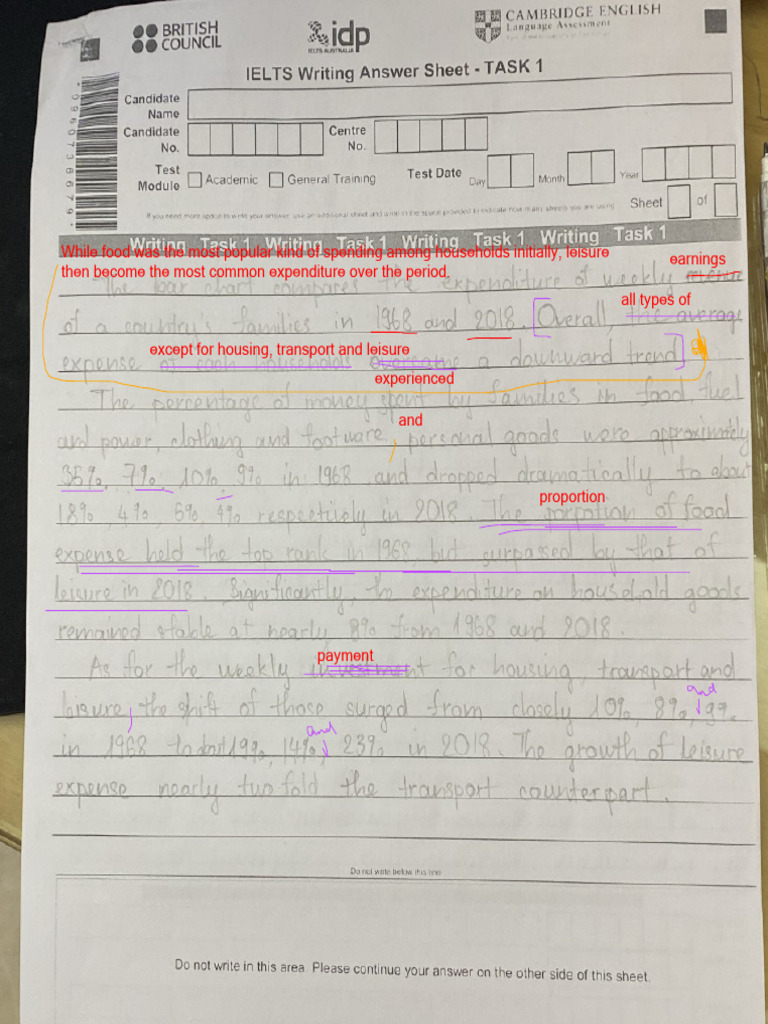 BRITISH COUNCIL
idp
IELTS AUSTRALIA
CAMBRIDGE ENGLISH
Language Assessment
IELTS Writing Answer Sheet - TASK 1
Candidate Name
Candidate No.
Centre No.
Test Module
Academic
General Training
Test Date
Day
Month
Year
Sheet of
If you need more space to write your answer, use an additional sheet and write in the space provided to indicate how many sheets you are using
Writing Task 1 Writing Task 1 Writing Task 1 Writing Task 1
While food was the most popular kind of spending among households initially, leisure
then become the most common expenditure over the period.
earnings
The bar chart compares the expenditure of weekly
all types of
of a country's families in 1968 and 2018. Overall, the average
except for housing, transport and leisure
expense of each households overcame a downward trend
experienced
The percentage of money spent by families in food, fuel
and
and power, clothing and footware, personal goods were approximately
35%, 7%, 10%, 9% in 1968 and dropped dramatically to about
proportion
18%, 4%, 5%, 4% respectively in 2018. The porpotion of food
expense held the top rank in 1968, but surpassed by that of
leisure in 2018. Significantly, the expenditure on household goods
remained stable at nearly 8% from 1968 and 2018.
payment
As for the weekly investment for housing, transport and
and
leisure, the shift of those surged from closely 10%, 8%, 9%
and
in 1968 to 19%, 14%, 23% in 2018. The growth of leisure
expense nearly two fold the transport counterpart.
Do not write below this line
Do not write in this area. Please continue your answer on the other side of this sheet.